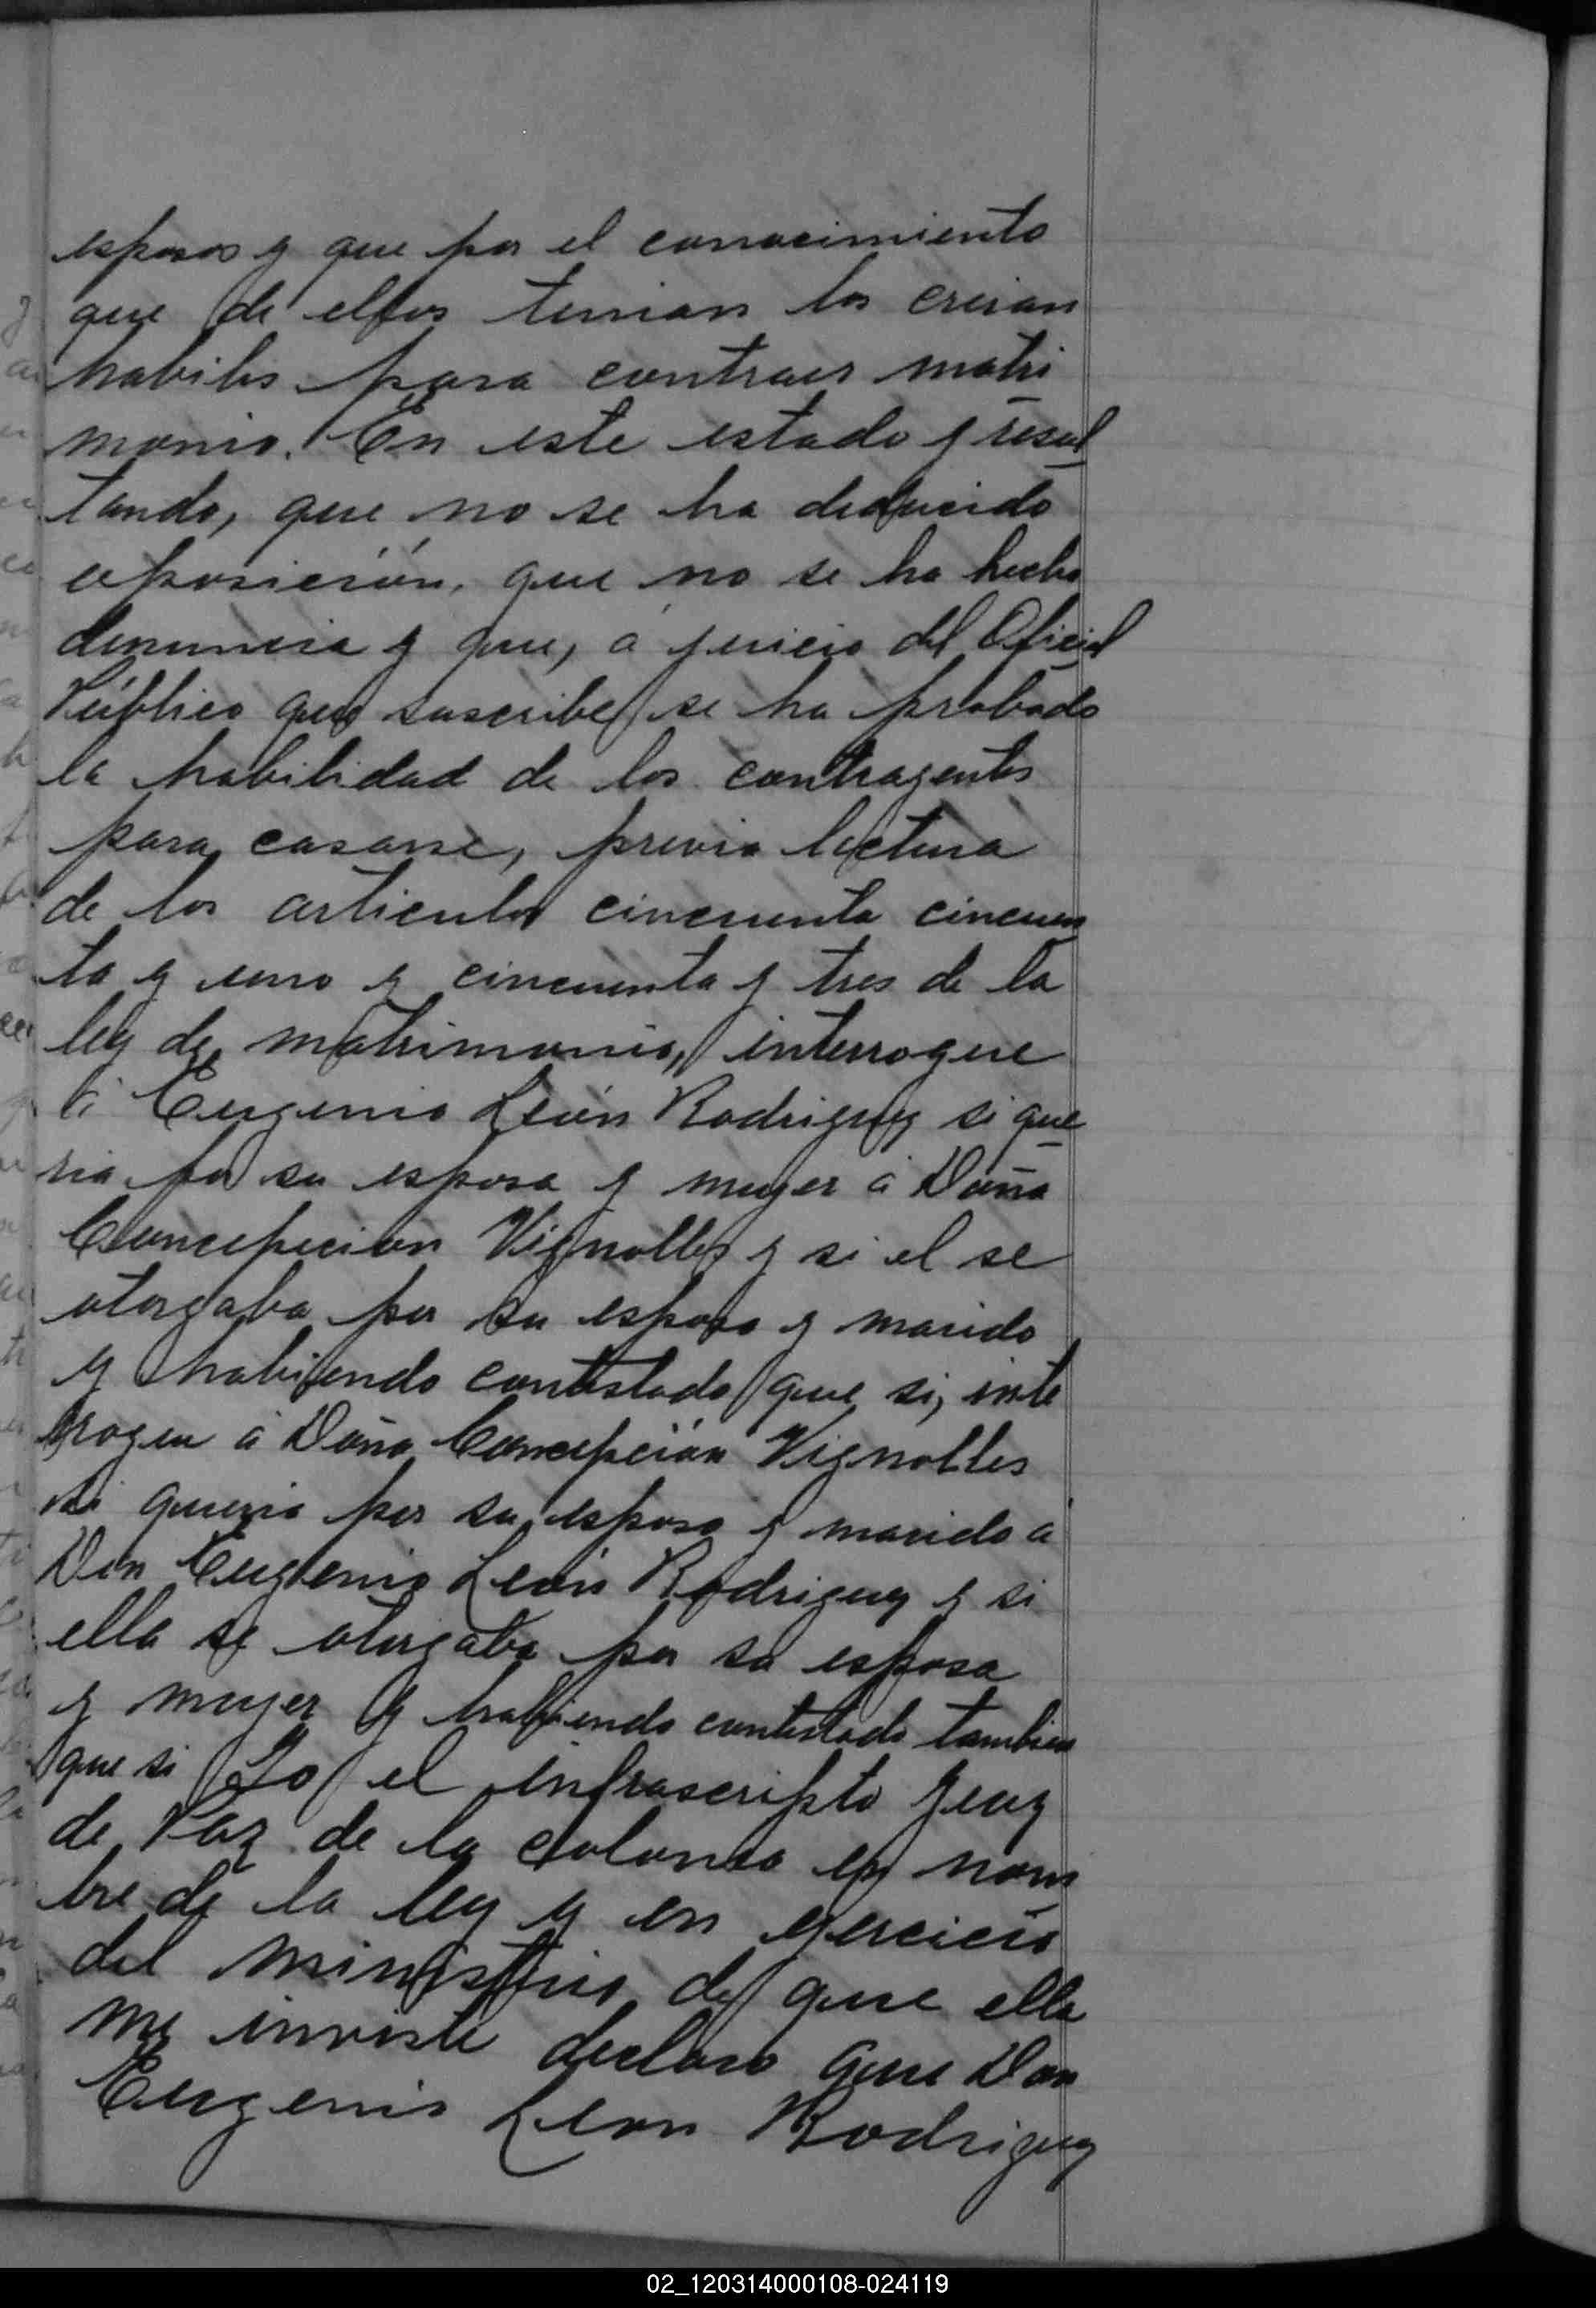 esposos y que por el conocimiento
que de ellos tenian los creian
habiles para contraer matri
monio. En este estado y resul
tando, que no se ha deducido
oposición, que no se ha hecho
denuncia y que, á juicio del Oficial
Público que suscribe, se ha probado
la habilidad de los contrayentes
para casarse, previa lectura
de los articulos cincuenta cincuen
ta y uno y cincuenta y tres de la
ley de matrimonio, interrogue
á Eugenio León Rodriguez si que
ria por su esposa y muger á Doña
Concepcion Vignolles y si el se
otorgaba por su esposo y marido
y habiendo contestado que si, inte
rrogue á Doña Concepción Vignolles
si queria por su esposo y marido a
Don Eugenio León Rodriguez y si
ella se otorgaba por su esposa
y muger y habiendo contestado tambien
que si Yo el infrascripto Juez
de Paz de la colonia en nom
bre de la ley y en ejercicio
del ministerio de que ella
me inviste declaro que Don
Eugenio Leon Rodriguez
02_120314000108-024119